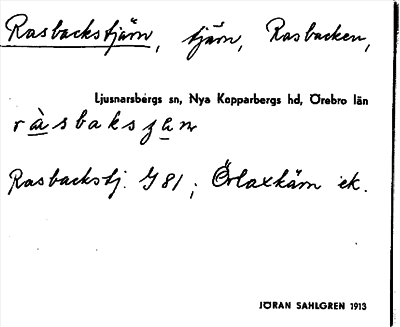 Rasbackstjärn, tjärn, Rasbacken,
Ljusnarsbergs sn, Nya Kopparbergs hd, Örebro län
ràsbaksʒan
Rasbackstj. G 81; Örlaxkärn ek.
JÖRAN SAHLGREN 1913